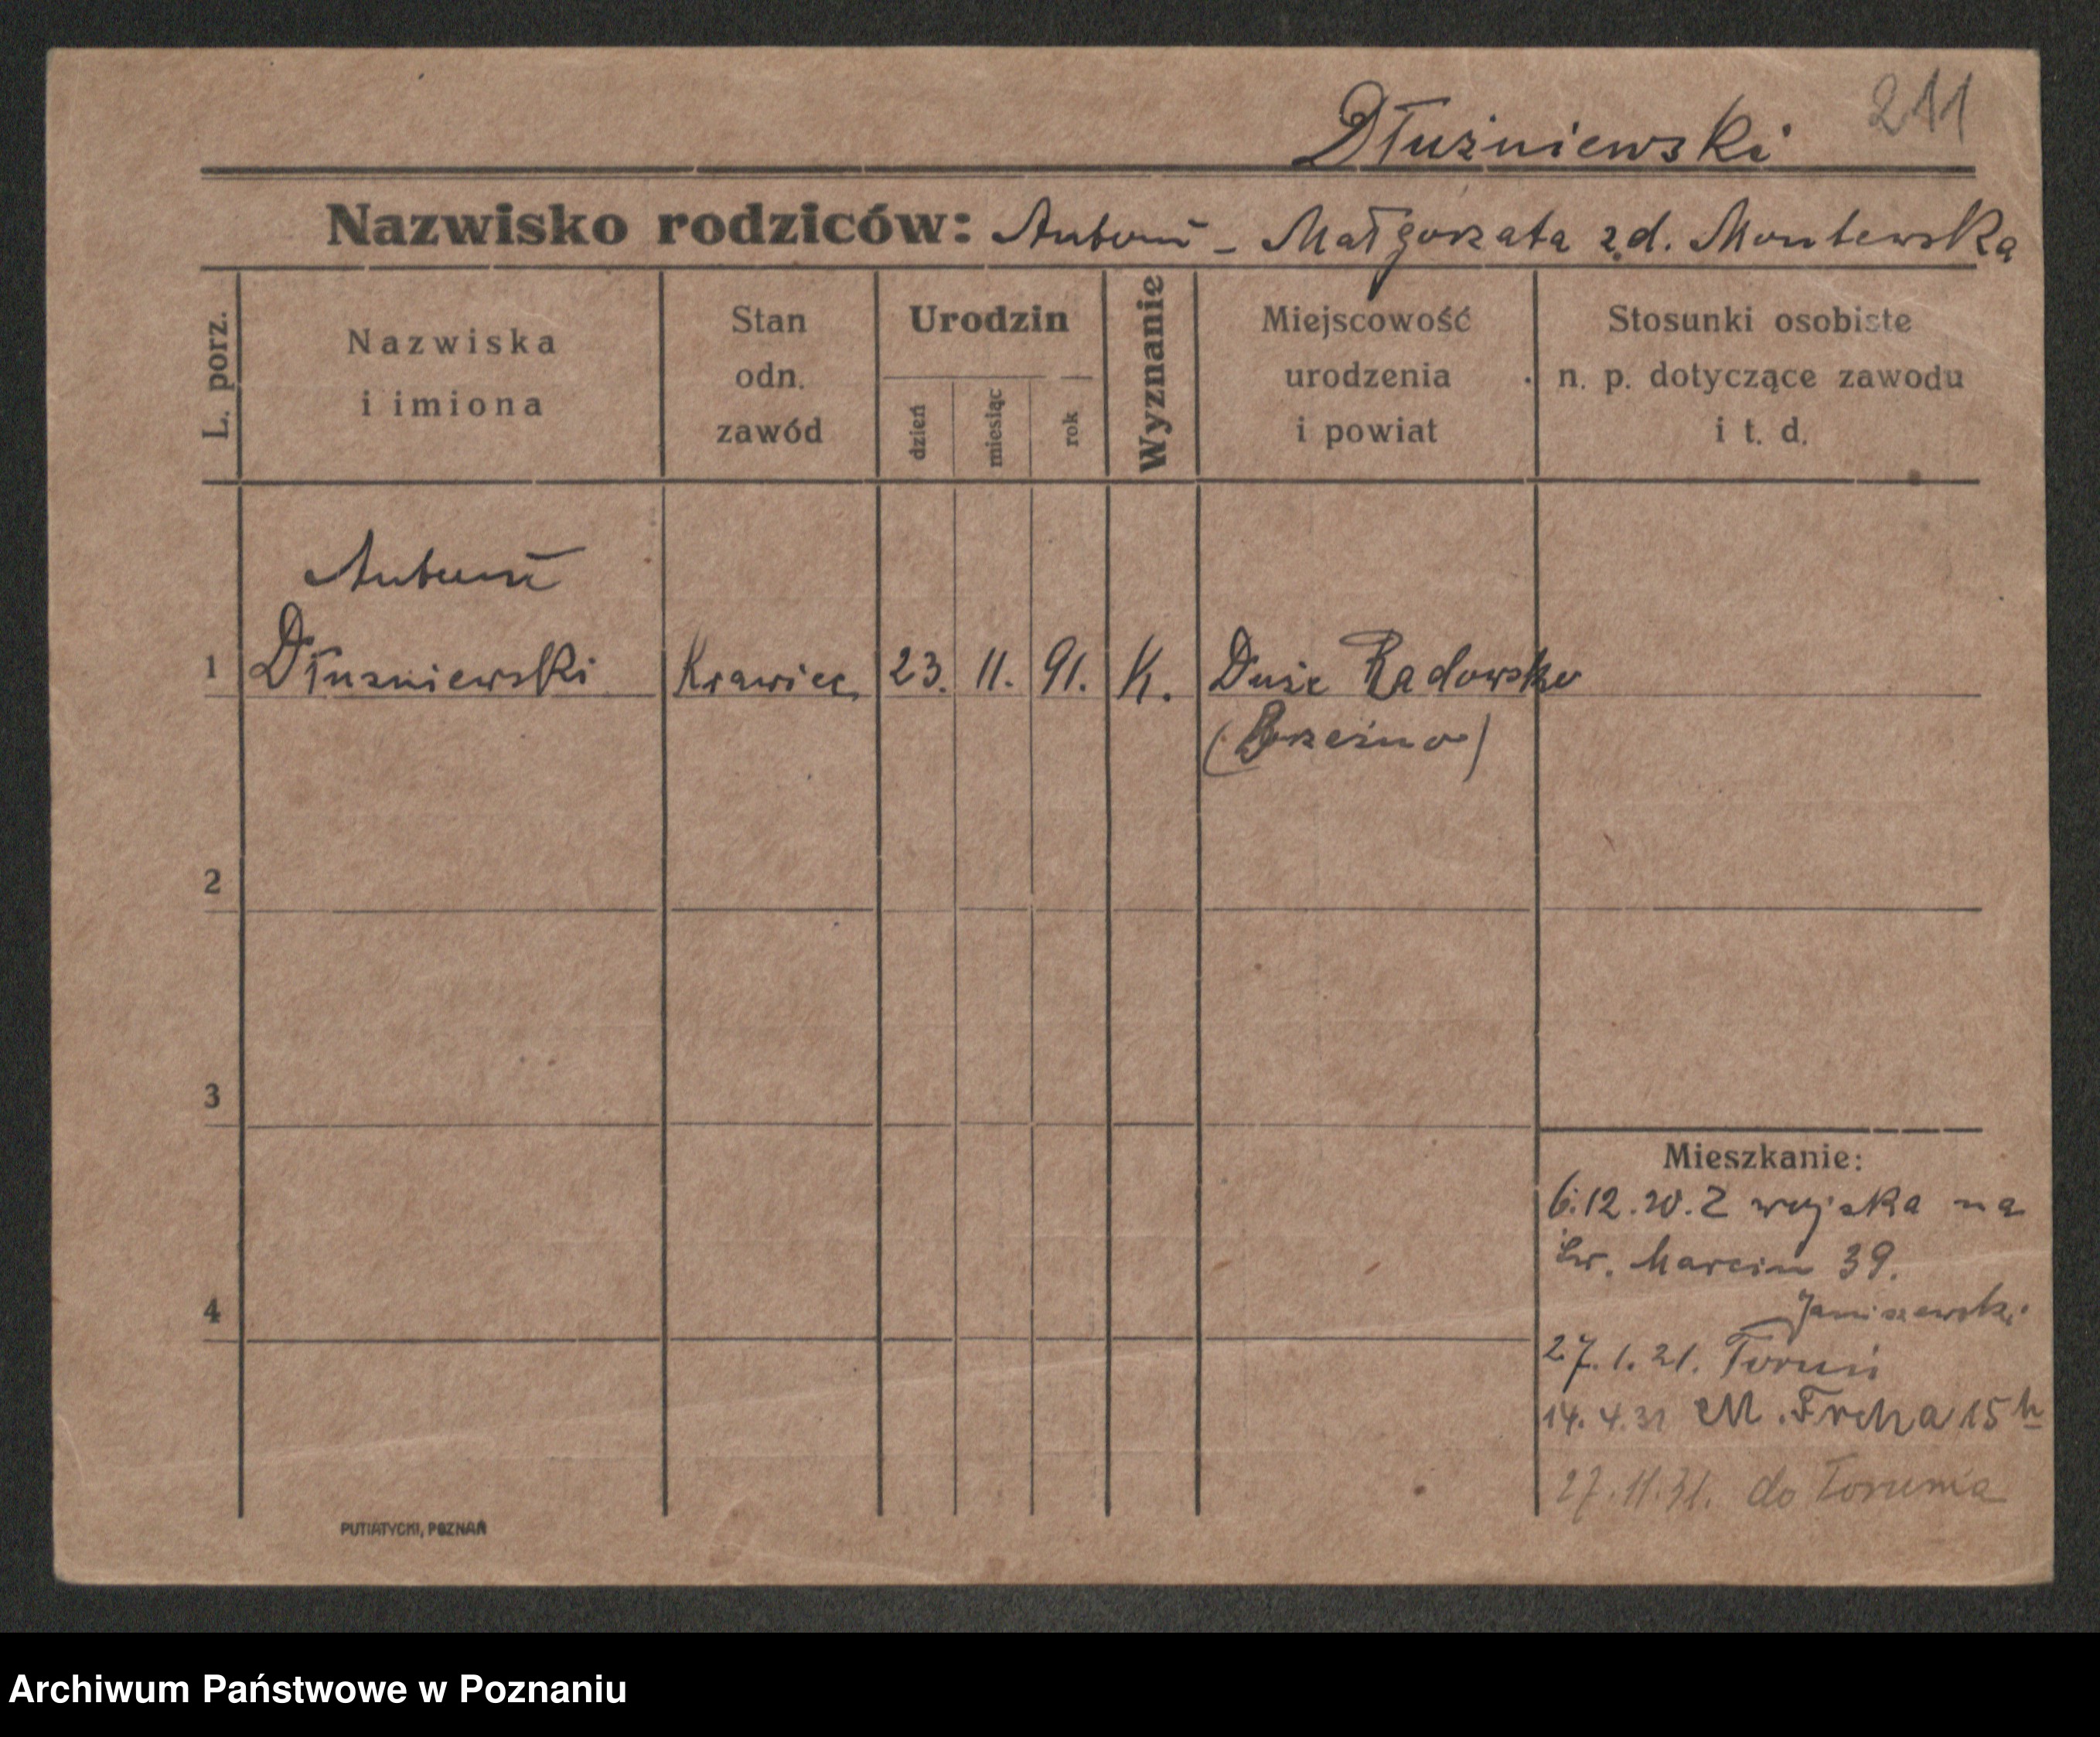 211
Dłużniewski
Nazwisko rodziców: Antoni - Małgorzata zd. Montewska
L. porz.
Nazwiska
i imiona
Stan
odn.
zawód
Urodzin
dzień
miesiąc
rok
Wyznanie
Miejscowość
urodzenia
i powiat
Stosunki osobiste
n. p. dotyczące zawodu
i t. d.
Antoni
1 Dłuzniewski Krawiec 23. 11. 91. K. Duże Radowsko
2
3
4
Mieszkanie:
6.12.20. Z wojska na
św. Marcin 39.
Janiszewski
27.1.21. Toruń
14. 4. 31 M. Focha 15
27.11.31. do Torunia
PUTIATYCKI, POZNAŃ
Archiwum Państwowe w Poznaniu